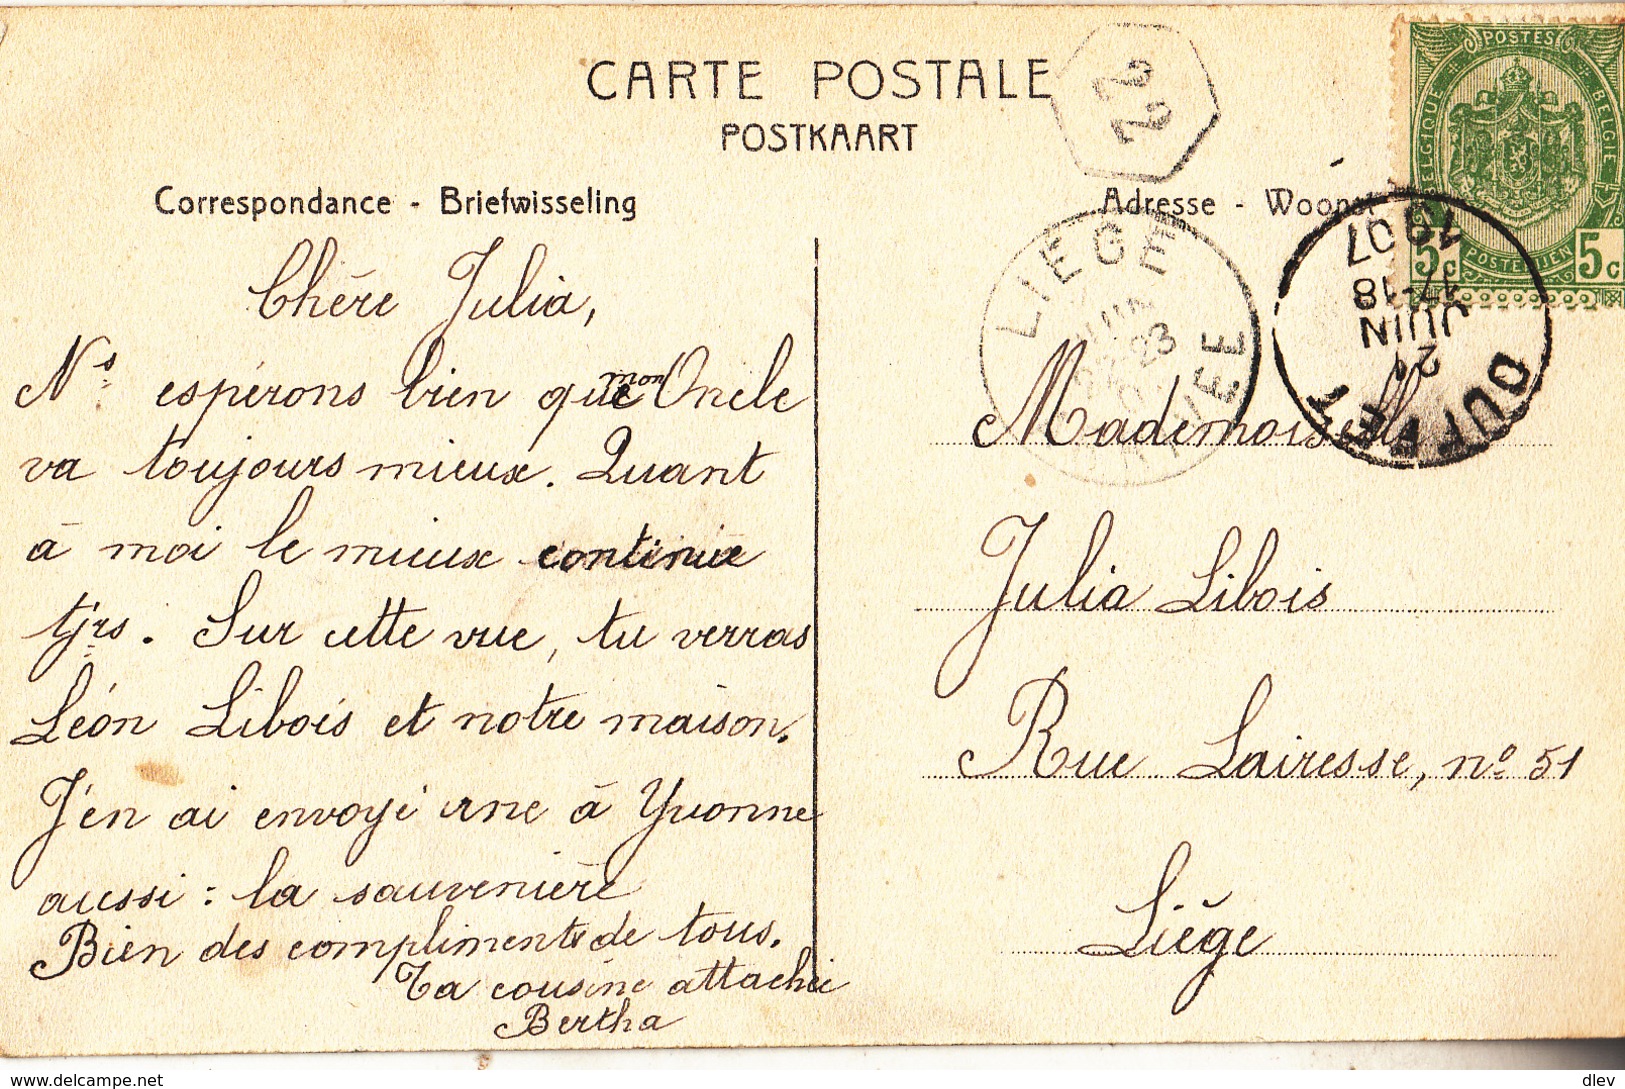 CARTE POSTALE
POSTKAART
22
Correspondance - Briefwisseling
Adresse - Woonst
POSTES
BELGIQUE
BELGIE
POSTERIJEN
5c 5c
LIEGE
JUIN
23
ARRIVEE
DUFFEL
JUIN
17-18
1907
Chère Julia,
Ns espérons bien que mon Oncle
va toujours mieux. Quant
à moi le mieux continue
tjrs. Sur cette vue, tu verras
Léon Libois et notre maison.
J'en ai envoyé une à Yvonne
aussi : la souvenière
Bien des compliments de tous.
Ta cousine attachée
Bertha
Mademoiselle
Julia Libois
Rue Lairesse, no 51
Liège
www.delcampe.net
dlev